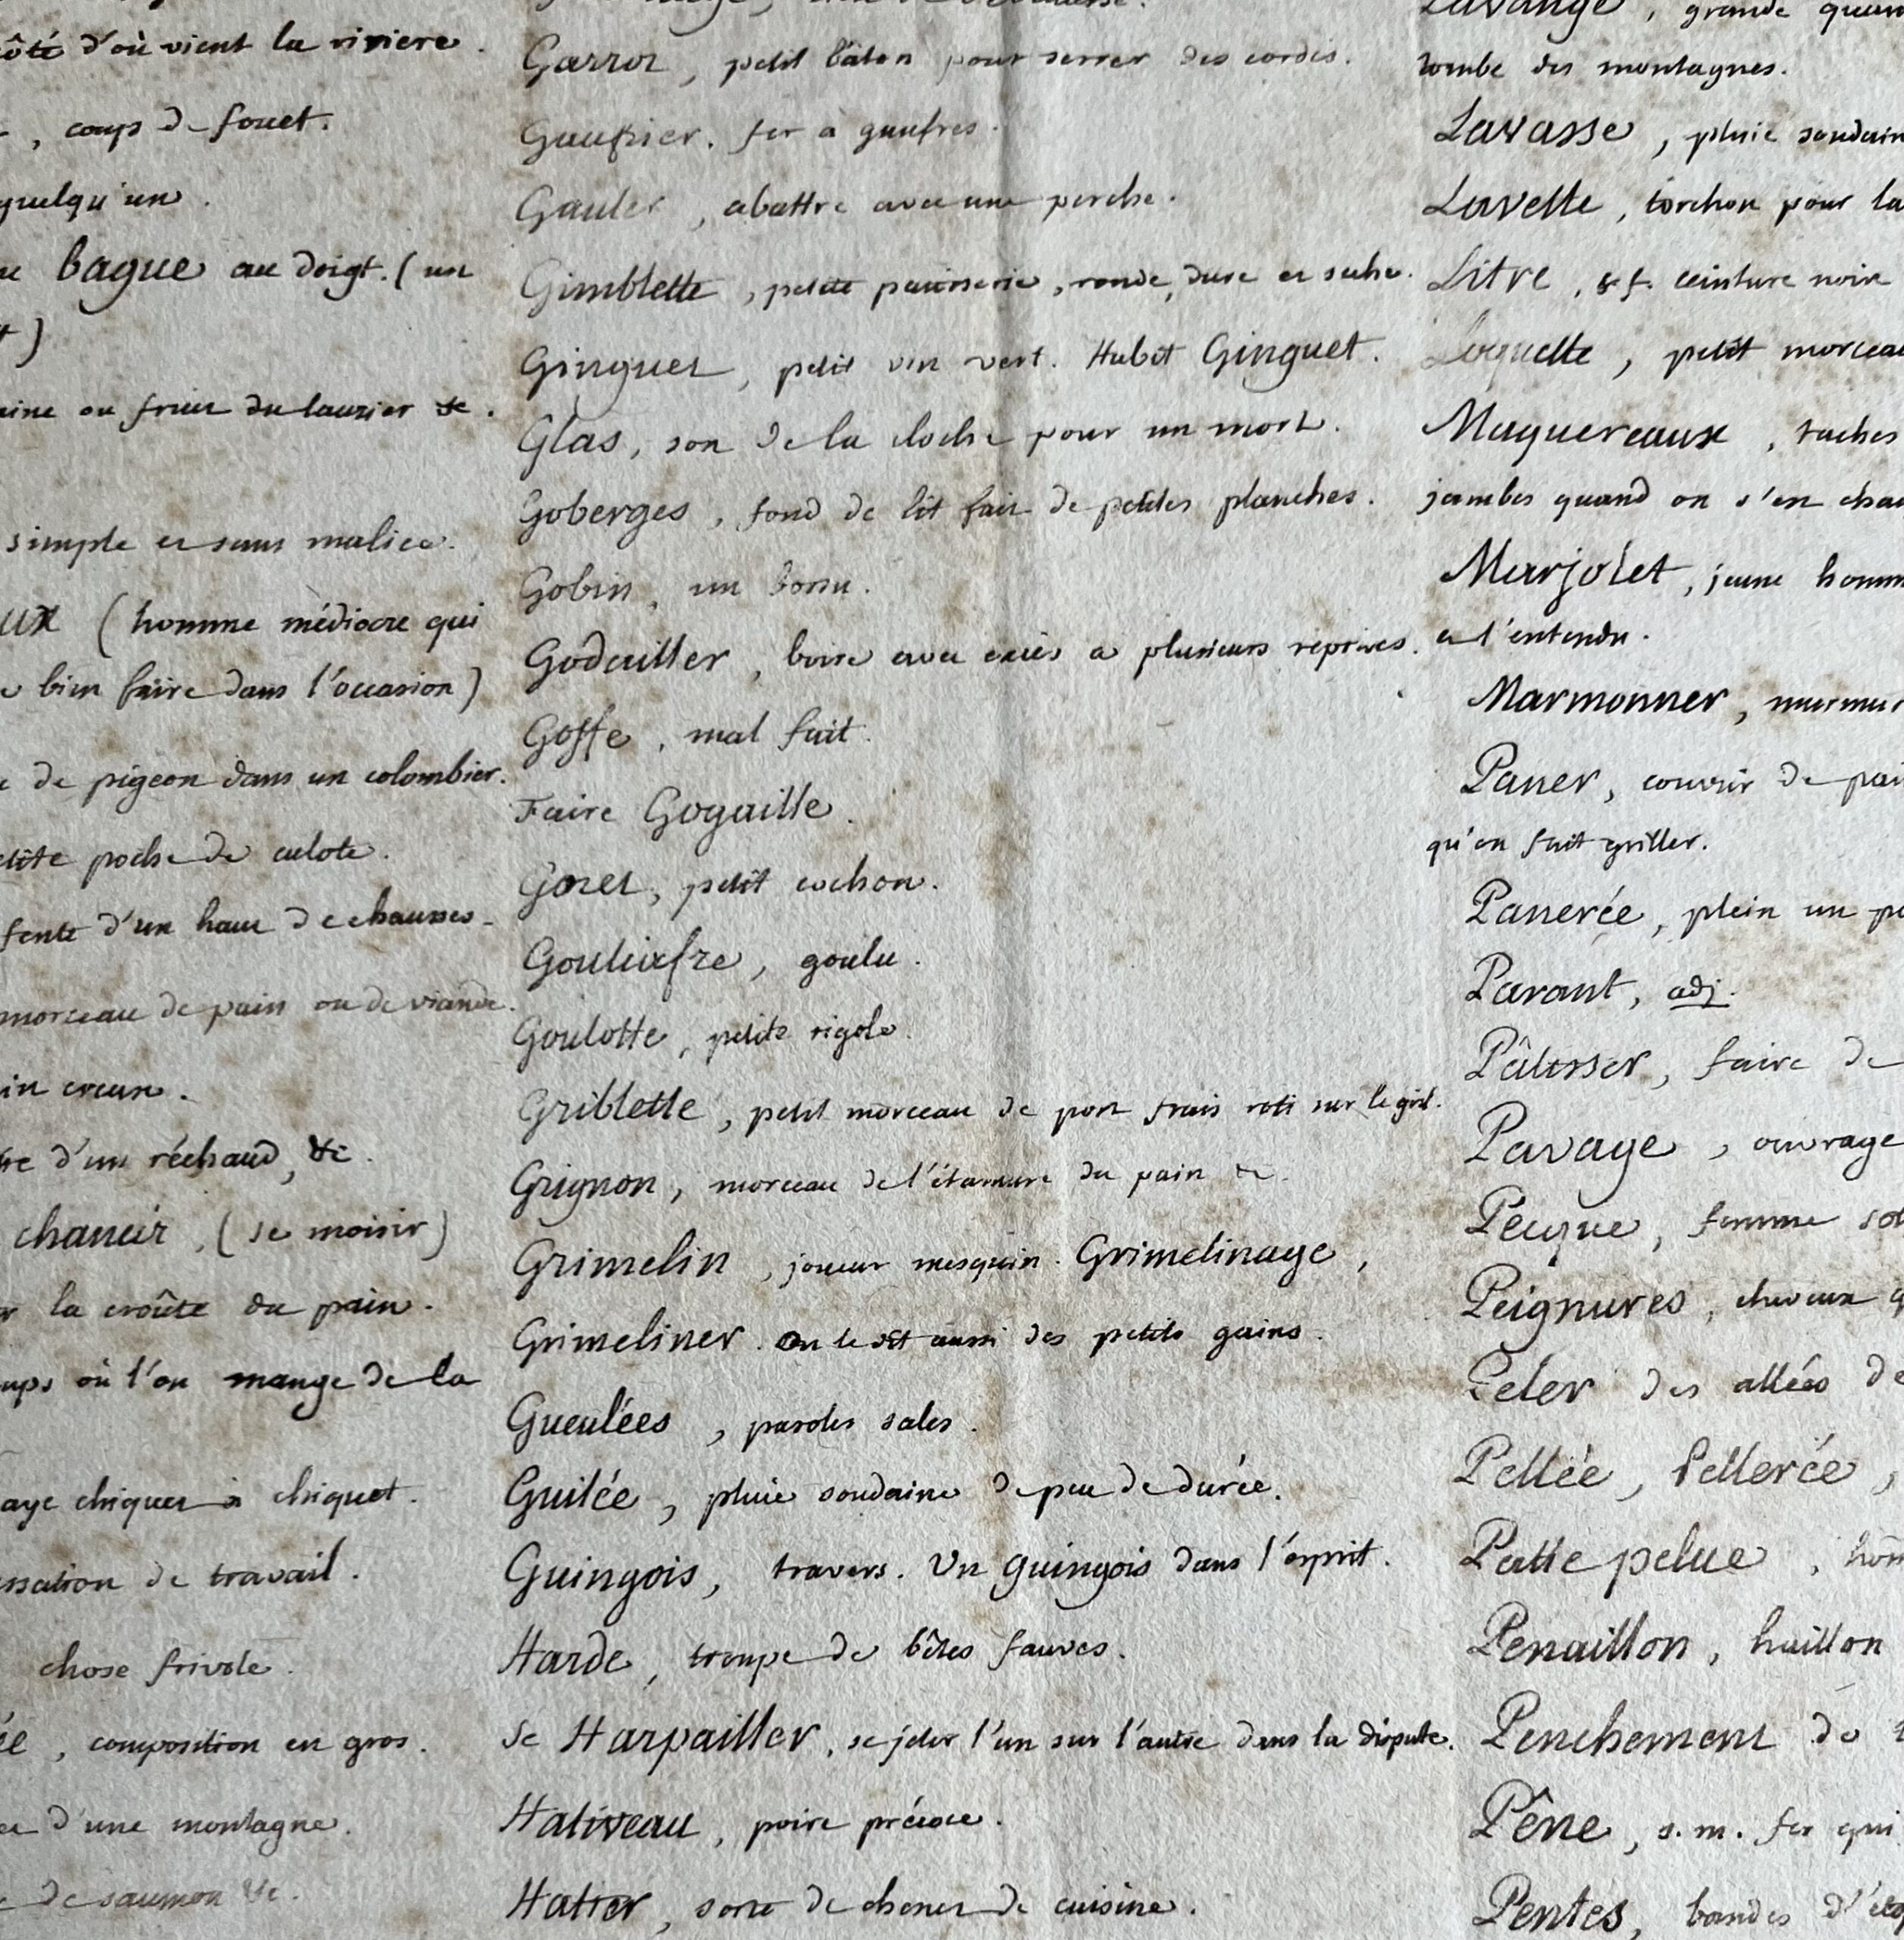 côté d'où vient la riviere.
, coup de fouet.
quelqu'un.
bague au doigt. (un
ou fruit du laurier &c.
simple et sans malice.
(homme médiocre qui
bien faire dans l'occasion)
de pigeon dans un colombier.
poche de culote.
fente d'un haut de chausses.
morceau de pain ou de viande.
creux.
d'un réchaud, &c.
chancir, (se moisir)
la croûte du pain.
où l'on mange de la
chiquet à chiquet.
de travail.
chose frivole.
, composition en gros.
d'une montagne.
de saumon &c.
Garrot, petit bâton pour serrer des cordes.
Gaufrier. fer à gaufres.
Gauler, abattre avec une perche.
Gimblette, petite patisserie, ronde, dure et seche.
Ginguet, petit vin vert. Habit Ginguet.
Glas, son de la cloche pour un mort.
Goberges, fond de lit fait de petites planches.
Gobin, un bossu.
Godailler, boire avec excès a plusieurs reprises.
Goffe, mal fait.
Faire Gogaille.
Goret, petit cochon.
Gouliafre, goulu.
Goulotte, petite rigole.
Griblette, petit morceau de porc frais roti sur le gril.
Grignon, morceau de l'étamure du pain &c.
Grimelin, joueur mesquin. Grimelinage,
Grimeliner. On le dit aussi des petits gains.
Gueulées, paroles sales.
Guilée, pluie soudaine de peu de durée.
Guingois, travers. Un guingois dans l'esprit.
Harde, troupe de bêtes fauves.
Se Harpailler, se jeter l'un sur l'autre dans la dispute.
Hativeau, poire précoce.
Hatier, sorte de chenet de cuisine.
Lavange, grande
tombe des montagnes.
Lavasse, pluie
Lavette, torchon pour la
Litre, s.f. ceinture noire
Loquette, petit
Maquereaux, taches
jambes quand on s'en
Marjolet, jeune
l'entendu.
Marmonner,
Paner, couvrir de
qu'on fait griller.
Panerée, plein un
Parant, adj.
Pâtisser, faire de
Pavage, ouvrage
Pecque, femme
Peignures, cheveux
Peler des allées de
Pellée, Pellerée,
Patte pelue,
Penaillon, haillon
Penchement de
Pêne, s.m. fer qui
Pentes, bandes